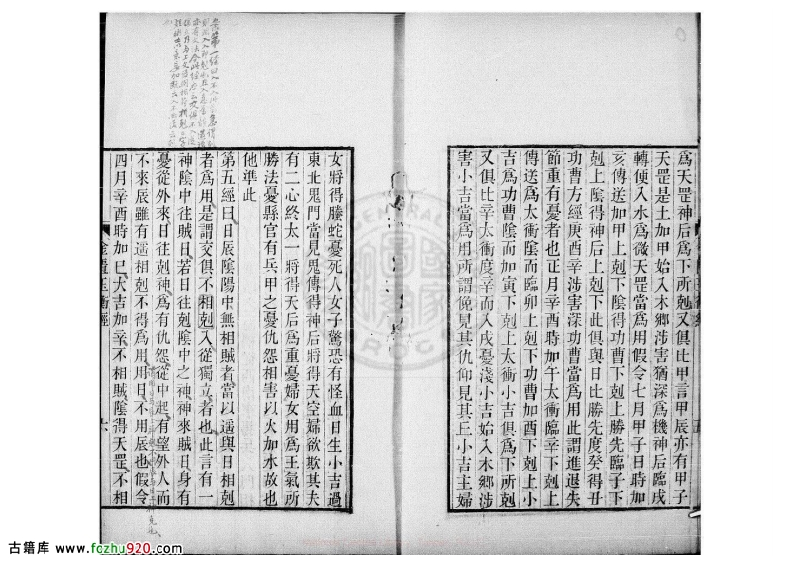 為天罡神后為下所剋又俱比甲言甲辰亦有甲子
天罡是土加甲始入木鄉涉害猶深為機神后臨戌
轉便入水為微天罡當為用假令七月甲子日時加
亥傳送加甲上剋下陰得功曹下剋上勝先臨子下
剋上陰得神后上剋下此俱與日比勝先度癸得丑
功曹方經庚酉辛涉害深功曹當為用此謂進退失
節重有憂者也正月辛酉時加午太衝臨辛下剋上
傳送為太衝陰而臨卯上剋下功曹加酉下剋上小
吉為功曹陰而加寅下剋上太衝小吉俱為下所剋
又俱比辛太衝度辛而入戌憂淺小吉始入木鄉涉
害小吉當為用所謂俛見其仇仰見其丘小吉主婦
女將得螣蛇憂死人女子驚恐有怪血日生小吉過
東北鬼門當見鬼傳得神后將得天空婦欲欺其夫
有二心終太一將得天后為重憂婦女用為王氣所
勝法憂縣官有兵甲之憂仇怨相害以火加水故也
他準此
第五經曰日辰陰陽中無相賊者當以遥與日相剋
者為用是謂交俱不相剋入從獨立者也此言有一
神陰中往賊日若日往剋陰中之神神來賊日身有
憂從外來日往剋神為有仇怨從中起有望外人而
不來辰雖有遥相剋不得為用用日不用辰也假令
四月辛酉時加巳大吉加辛不相賊陰得天罡不相
金匱玉衡經
六
古籍库 www.fczhu920.com